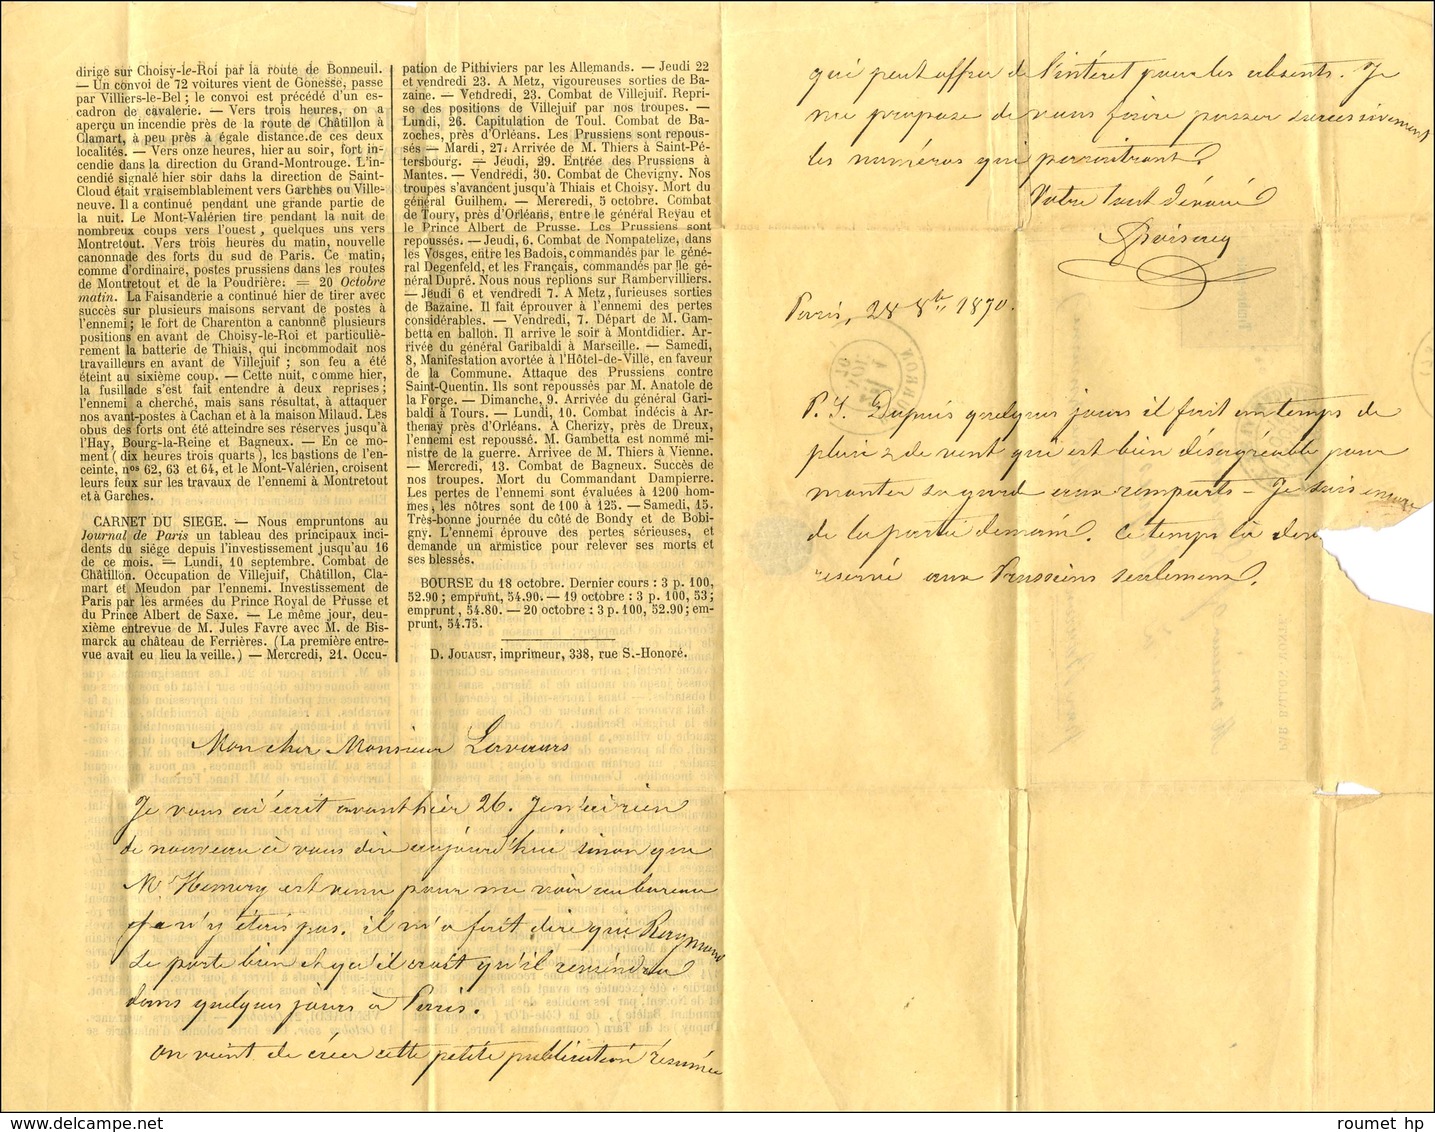 dirigé sur Choisy-le-Roi par la route de Bonneuil.
— Un convoi de 72 voitures vient de Gonesse, passe
par Villiers-le-Bel ; le convoi est précédé d'un es-
cadron de cavalerie. — Vers trois heures, on a
aperçu un incendie près de la route de Châtillon à
Clamart, à peu près à égale distance.de ces deux
localités. — Vers onze heures, hier au soir, fort in-
cendie dans la direction du Grand-Montrouge. L'in-
cendié signalé hier soir dans la direction de Saint-
Cloud était vraisemblablement vers Garches ou Ville-
neuve. Il a continué pendant une grande partie de
la nuit. Le Mont-Valérien tire pendant la nuit de
nombreux coups vers l'ouest, quelques uns vers
Montretout. Vers trois heures du matin, nouvelle
canonnade des forts du sud de Paris. Ce matin,
comme d'ordinaire, postes prussiens dans les routes
de Montretout et de la Poudrière: = 20 Octobre
matin. La Faisanderie a continué hier de tirer avec
succès sur plusieurs maisons servant de postes à
l'ennemi ; le fort de Charenton a canonné plusieurs
positions en avant de Choisy-le-Roi et particuliè-
rement la batterie de Thiais, qui incommodait nos
travailleurs en avant de Villejuif ; son feu a été
éteint au sixième coup. — Cette nuit, comme hier,
la fusillade s'est fait entendre à deux reprises ;
l'ennemi a cherché, mais sans résultat, à attaquer
nos avant-postes à Cachan et à la maison Milaud. Les
obus des forts ont été atteindre ses réserves jusqu'à
l'Hay, Bourg-la-Reine et Bagneux. — En ce mo-
ment (dix heures trois quarts), les bastions de l'en-
ceinte, nos 62, 63 et 64, et le Mont-Valérien, croisent
leurs feux sur les travaux de l'ennemi à Montretout
et à Garches.
CARNET DU SIEGE. — Nous empruntons au
Journal de Paris un tableau des principaux inci-
dents du siége depuis l'investissement jusqu'au 16
de ce mois. — Lundi, 10 septembre. Combat de
Châtillon. Occupation de Villejuif, Châtillon, Cla-
mart et Meudon par l'ennemi. Investissement de
Paris par les armées du Prince Royal de Prusse et
du Prince Albert de Saxe. — Le même jour, deu-
xième entrevue de M. Jules Favre avec M. de Bis-
marck au château de Ferrières. (La première entre-
vue avait eu lieu la veille.) — Mercredi, 21. Occu-
pation de Pithiviers par les Allemands. — Jeudi 22
et vendredi 23. A Metz, vigoureuses sorties de Ba-
zaine. — Vendredi, 23. Combat de Villejuif. Repri-
se des positions de Villejuif par nos troupes. —
Lundi, 26. Capitulation de Toul. Combat de Ba-
zoches, près d'Orléans. Les Prussiens sont repous-
sés — Mardi, 27. Arrivée de M. Thiers à Saint-Pé-
tersbourg. — Jeudi, 29. Entrée des Prussiens à
Mantes. — Vendredi, 30. Combat de Chevigny. Nos
troupes s'avancent jusqu'à Thiais et Choisy. Mort du
général Guilhem. — Mercredi, 5 octobre. Combat
de Toury, près d'Orléans, entre le général Reyau et
le Prince Albert de Prusse. Les Prussiens sont
repoussés. — Jeudi, 6. Combat de Nompatelize, dans
les Vosges, entre les Badois, commandés par le géné-
ral Degenfeld, et les Français, commandés par le gé-
néral Dupré. Nous nous replions sur Rambervilliers.
— Jeudi 6 et vendredi 7. A Metz, furieuses sorties
de Bazaine. Il fait éprouver à l'ennemi des pertes
considérables. — Vendredi, 7. Départ de M. Gam-
betta en ballon. Il arrive le soir à Montdidier. Ar-
rivée du général Garibaldi à Marseille. — Samedi,
8, Manifestation avortée à l'Hôtel-de-Ville, en faveur
de la Commune. Attaque des Prussiens contre
Saint-Quentin. Ils sont repoussés par M. Anatole de
la Forge. — Dimanche, 9. Arrivée du général Gari-
baldi à Tours. — Lundi, 10. Combat indécis à Ar-
thenay près d'Orléans. A Cherizy, près de Dreux,
l'ennemi est repoussé. M. Gambetta est nommé mi-
nistre de la guerre. Arrivee de M. Thiers à Vienne.
— Mercredi, 13. Combat de Bagneux. Succès de
nos troupes. Mort du Commandant Dampierre.
Les pertes de l'ennemi sont évaluées à 1200 hom-
mes, les nôtres sont de 100 à 125. — Samedi, 15.
Très-bonne journée du côté de Bondy et de Bobi-
gny. L'ennemi éprouve des pertes sérieuses, et
demande un armistice pour relever ses morts et
ses blessés.
BOURSE du 18 octobre. Dernier cours : 3 p. 100,
52.90 ; emprunt, 54.90. — 19 octobre : 3 p. 100, 53 ;
emprunt, 54.80. — 20 octobre : 3 p. 100, 52.90 ; em-
prunt, 54.75.
D. JOUAUST, imprimeur, 338, rue S.-Honoré.
Mon cher Monsieur
Je vous ai écrit avant hier 26. Je n'ai rien
de nouveau à vous dire aujourd'hui sinon que
Mr Hemery est venu pour me voir au bureau
je n'y étais pas. il m'a fait dire que Raymond
se porte bien et qu'il croit qu'il reviendra
dans quelques jours à Paris.
on vient de créer cette petite publication résumée
qui peut offrir de l'intéret pour les absents. Je
me propose de vous faire passer successivement
les numéros qui paraîtront.
Votre tout dévoué
Paris, 28 8bre 1870.
P.S. Depuis quelques jours il fait un temps de
pluie & de vent qui est bien désagréable pour
monter sa garde aux remparts — Je suis encore
de la partie demain. Ce temps là
réservé aux Prussiens seulement.
PAR BALLON MONTÉ
roumet hp